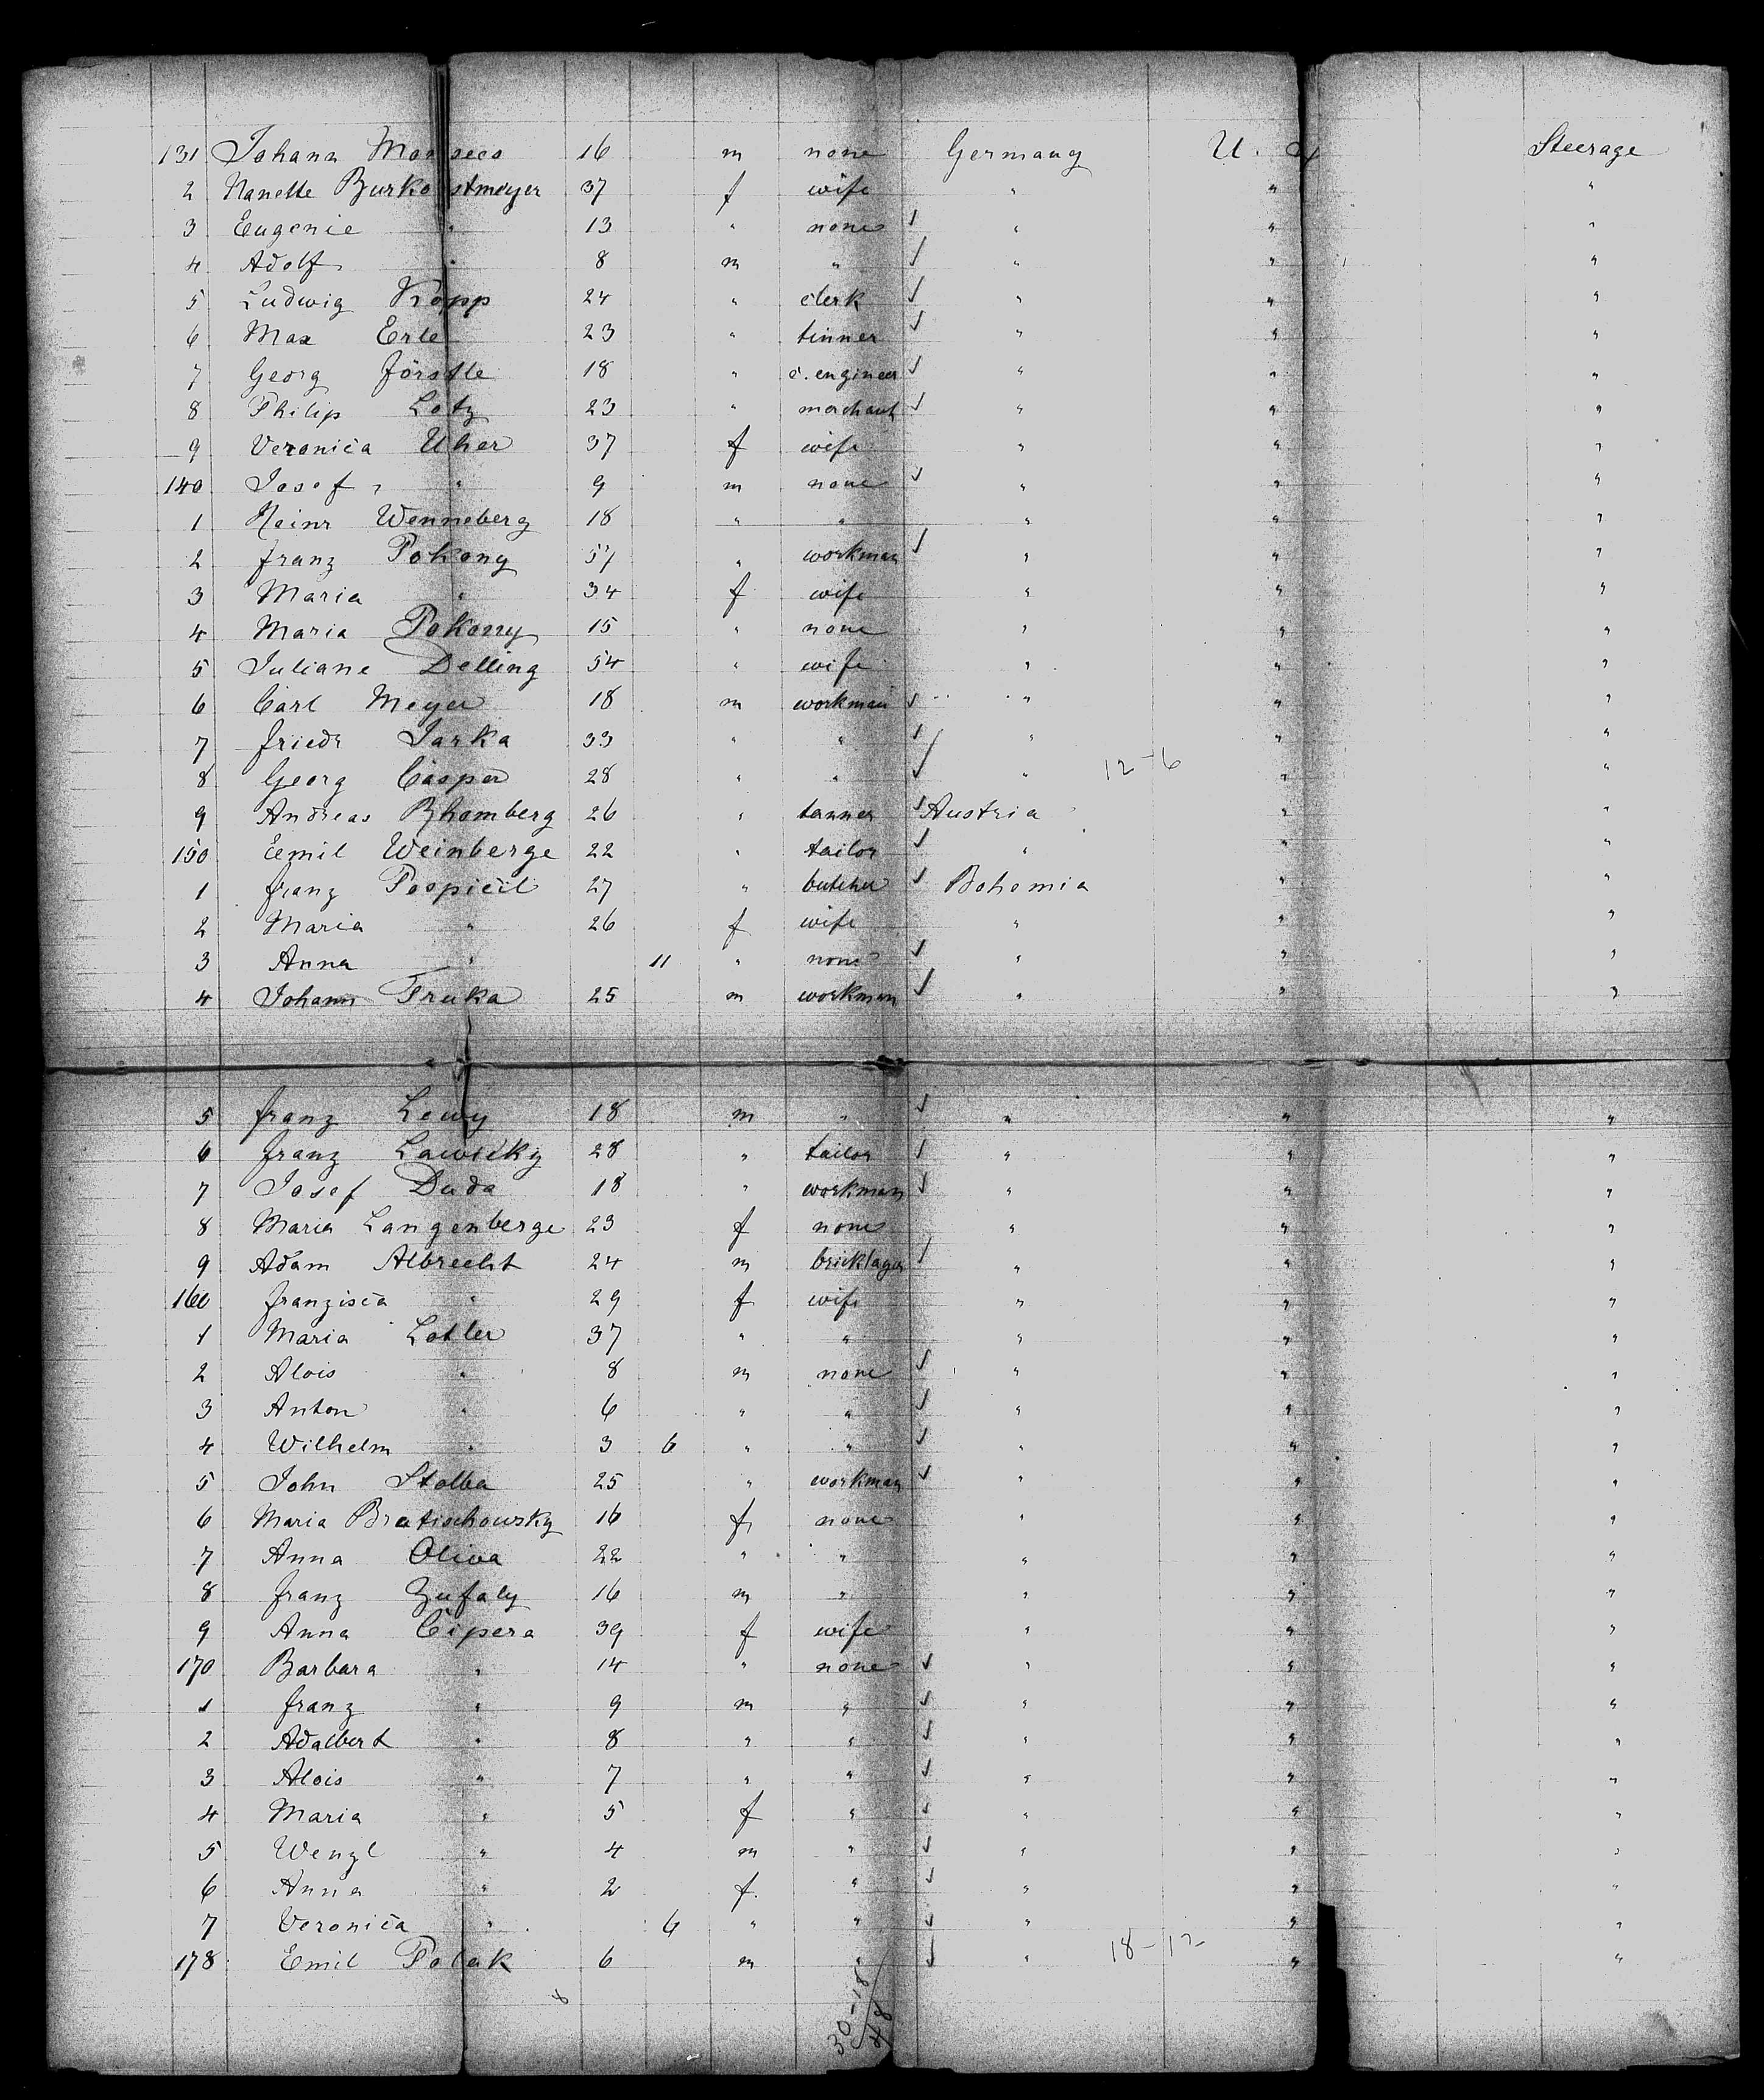 131 Johann 16 m none Germany U. Steerage
2 Nanette Burkostmeyer 37 f wife " " "
3 Eugenie " 13 " none " " "
4 Adolf " 8 m " " " "
5 Ludwig Kopp 24 " clerk " " "
6 Max Erle 23 " tinner " " "
7 Georg Förstle 18 " c. engineer " " "
8 Philip Lotz 23 " merchant " " "
9 Veronica Uher 37 f wife " " "
140 Josef " 9 m none " " "
1 Heinr Wenneberg 18 " " " " "
2 Franz Pokony 57 " workman " " "
3 Maria " 34 f wife " " "
4 Maria Pokorny 15 " none " " "
5 Juliane Delling 54 " wife " " "
6 Carl Meyer 18 m workman " " "
7 Friedr Jarka 33 " " " " "
8 Georg Casper 28 " " " 12-6 " "
9 Andreas Rhomberg 26 " tanner Austria " "
150 Eemil Weinberge 22 " tailor " " "
1 Franz Pospicil 27 " butcher Bohemia " "
2 Maria " 26 f wife " " "
3 Anna " 11 " none " " "
4 Johann Truka 25 m workman " " "
5 Franz Lewy 18 m " " " "
6 Franz Lawicky 28 " tailor " " "
7 Josef Duda 18 " workman " " "
8 Maria Langenberge 23 f none " " "
9 Adam Albrecht 24 m bricklayer " " "
160 Franzisca " 29 f wife " " "
1 Maria Lotler 37 " " " " "
2 Alois " 8 m none " " "
3 Anton " 6 " " " " "
4 Wilhelm " 3 6 " " " " "
5 John Stolba 25 " workman " " "
6 Maria Bratischowsky 16 f none " " "
7 Anna Oliva 22 " " " " "
8 Franz Zufaly 16 m " " " "
9 Anna Cipera 39 f wife " " "
170 Barbara " 14 " none " " "
1 Franz " 9 m " " " "
2 Adalbert " 8 " " " " "
3 Alois " 7 " " " " "
4 Maria " 5 f " " " "
5 Wenzl " 4 m " " " "
6 Anna " 2 f " " " "
7 Veronica " 6 " " " " "
178 Emil Polak 6 m " " 18-12 " "
30-18
48